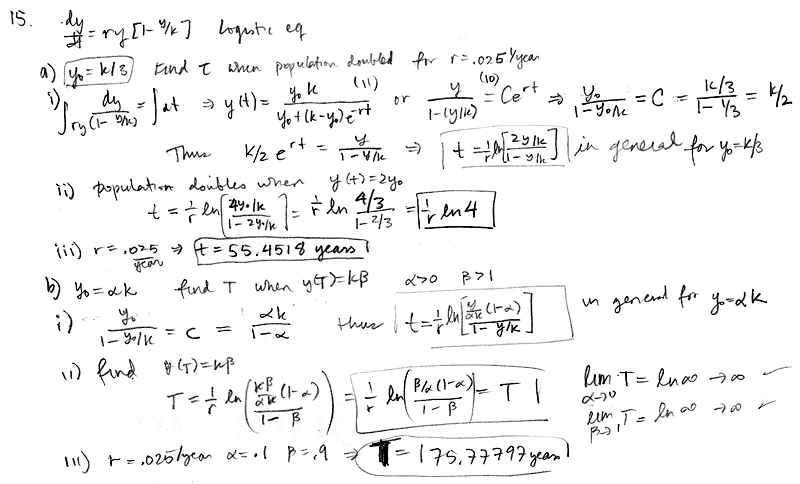 15. dy/dt = ry[1 - y/k] Logistic eq
a) y₀ = k/3 find τ when population doubled for r = .025 1/year
i) ∫ dy/(ry(1 - y/k)) = ∫dt ⇒ y(t) = y₀k/(y₀ + (k - y₀)e^-rt) (11) or y/(1-(y/k)) = Ce^rt (10) ⇒ y₀/(1 - y₀/k) = C = (k/3)/(1 - 1/3) = k/2
Thus k/2 e^rt = y/(1 - y/k) ⇒ t = 1/r ln[(2y/k)/(1 - y/k)] in general for y₀ = k/3
ii) population doubles when y(t) = 2y₀
t = 1/r ln[(4y₀/k)/(1 - 2y₀/k)] = 1/r ln (4/3)/(1 - 2/3) = 1/r ln 4
iii) r = .025/year ⇒ t = 55.4518 years
b) y₀ = αk find T when y(T) = kβ α>0 β>1
i) y₀/(1 - y₀/k) = C = αk/(1-α) thus t = 1/r ln[(y/αk (1-α))/(1 - y/k)] in general for y₀ = αk
ii) find y(T) = kβ
T = 1/r ln((kβ/αk (1-α))/(1 - β)) = 1/r ln((β/α(1-α))/(1 - β)) = T
lim α→0 T = ln ∞ → ∞ ✓
lim β→1 T = ln ∞ → ∞ ✓
iii) r = .025/year α = .1 β = .9 ⇒ T = 175.77797 years